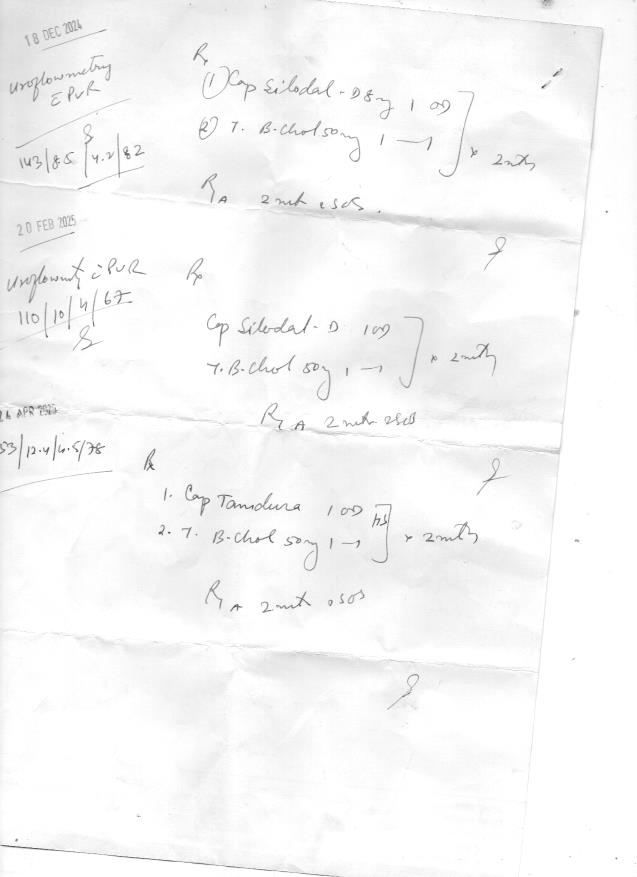 18 DEC 2024
Uroflowmetry
c̄ PVR
143/8.5/4.2/82
Rx
(1) Cap Silodal-D 8mg 1 OD
(2) T. B-Chol 50mg 1 — 1
x 2mths
R/A 2mth SOS.
20 FEB 2025
Uroflowmetry c̄ PVR
110/10/4/67
Rx
Cap Silodal-D 1 OD
T. B-Chol 50mg 1 — 1
x 2mth
R/A 2mth SOS
24 APR 2025
53/12.4/4.5/78
Rx
1. Cap Tamdura 1 OD HS
2. T. B-Chol 50mg 1 — 1
x 2mth
R/A 2mth SOS